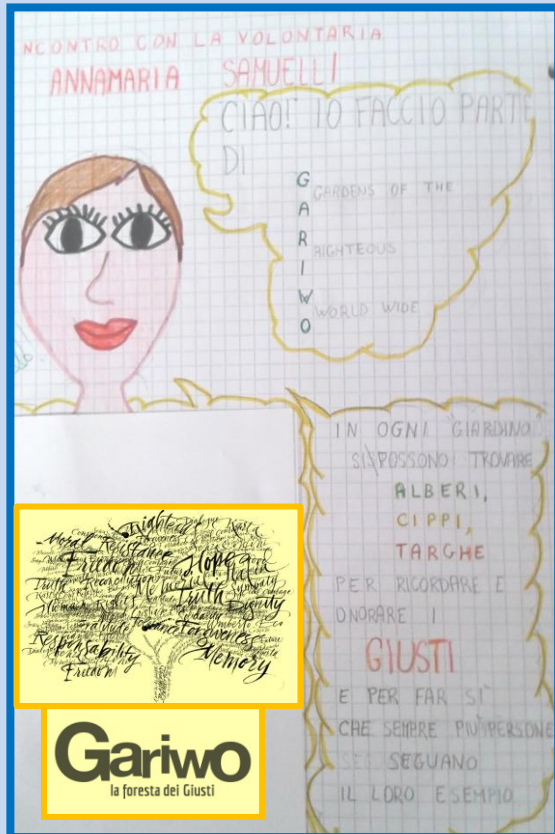 NCONTRO CON LA VOLONTARIA
ANNAMARIA SAMUELLI
CIAO! IO FACCIO PARTE
DI
GARDENS OF THE
RIGHTEOUS
WORLD WIDE
GARIWO
IN OGNI GIARDINO
SI POSSONO TROVARE
ALBERI,
CIPPI,
TARGHE
PER RICORDARE E
ONORARE I
GIUSTI
E PER FAR SÌ
CHE SEMPRE PIÙ PERSONE
SEGUANO
IL LORO ESEMPIO
Moral Resistance
Freedom Hope
Truth Reconciliation
Truth Dignity
Forgiveness
Responsability
Memory
Freedom
Gariwo
la foresta dei Giusti